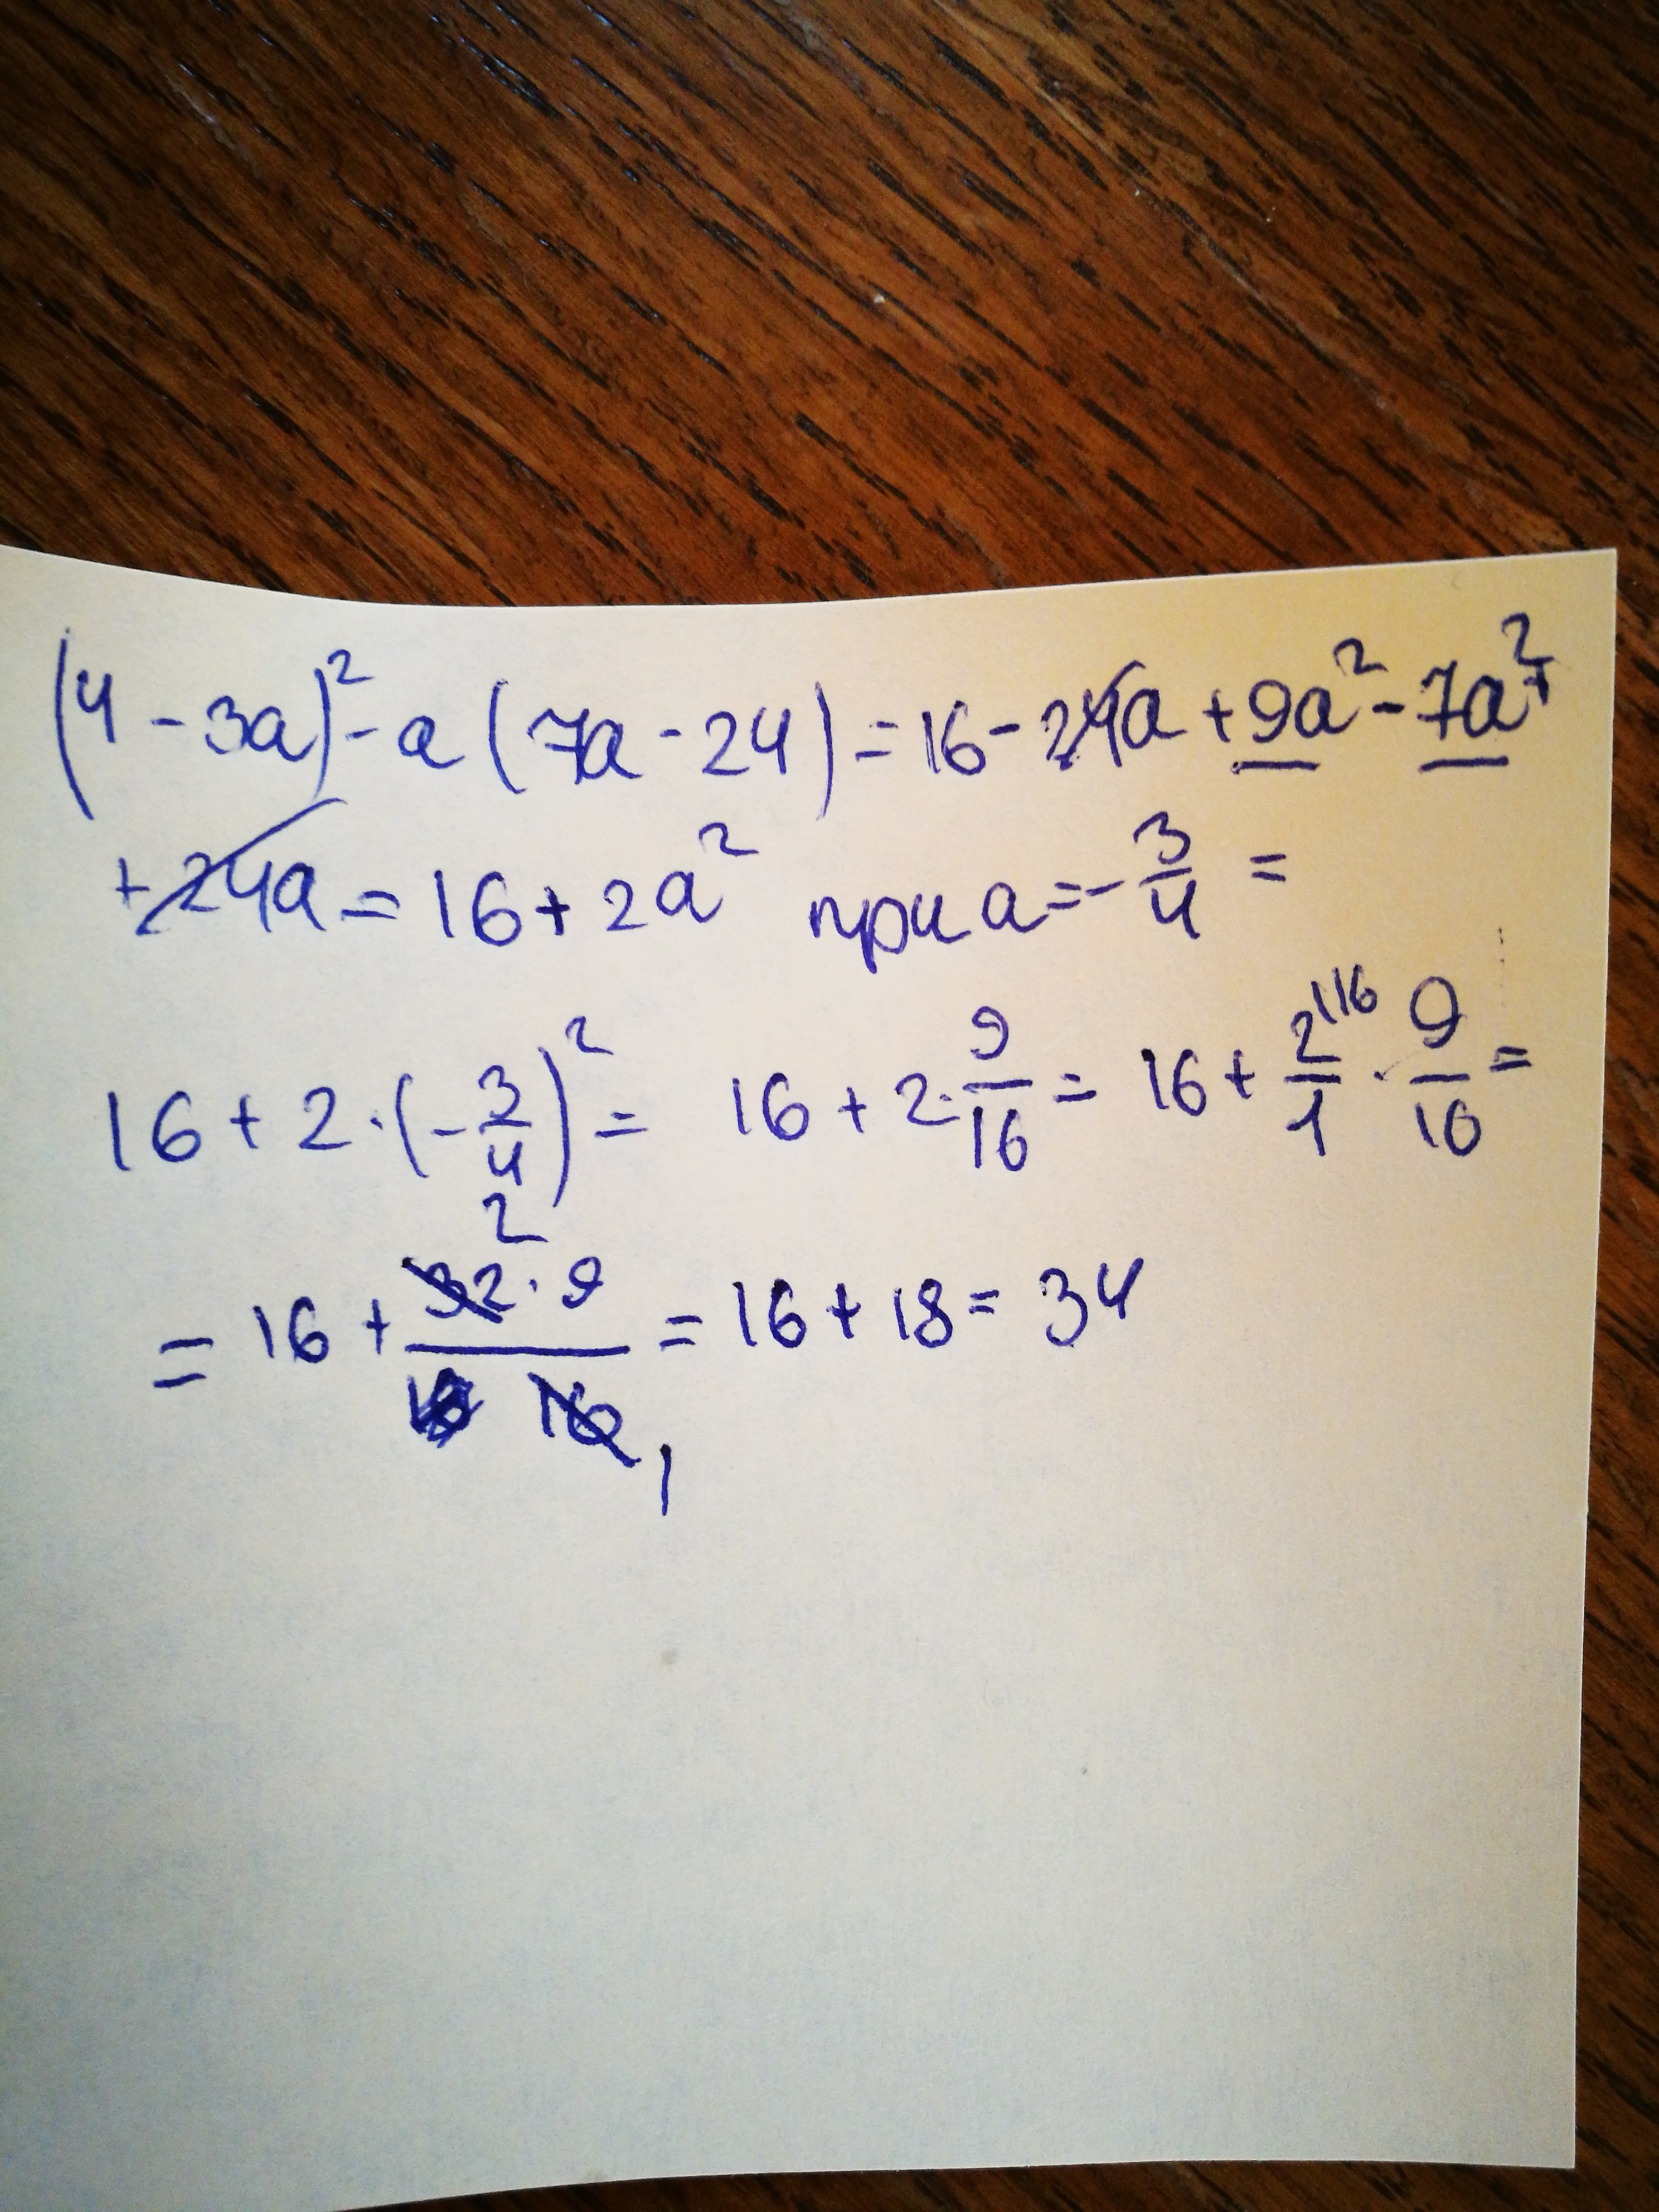 (4 - 3a)² - a (7a - 24) = 16 - 24a + 9a² - 7a² +
+ 24a = 16 + 2a² при a = - 3/4 =
16 + 2 · (- 3/4)² = 16 + 2 · 9/16 = 16 + 2^(116/1 · 9/16 =
= 16 + 32² · 9 / 16 1 = 16 + 18 = 34